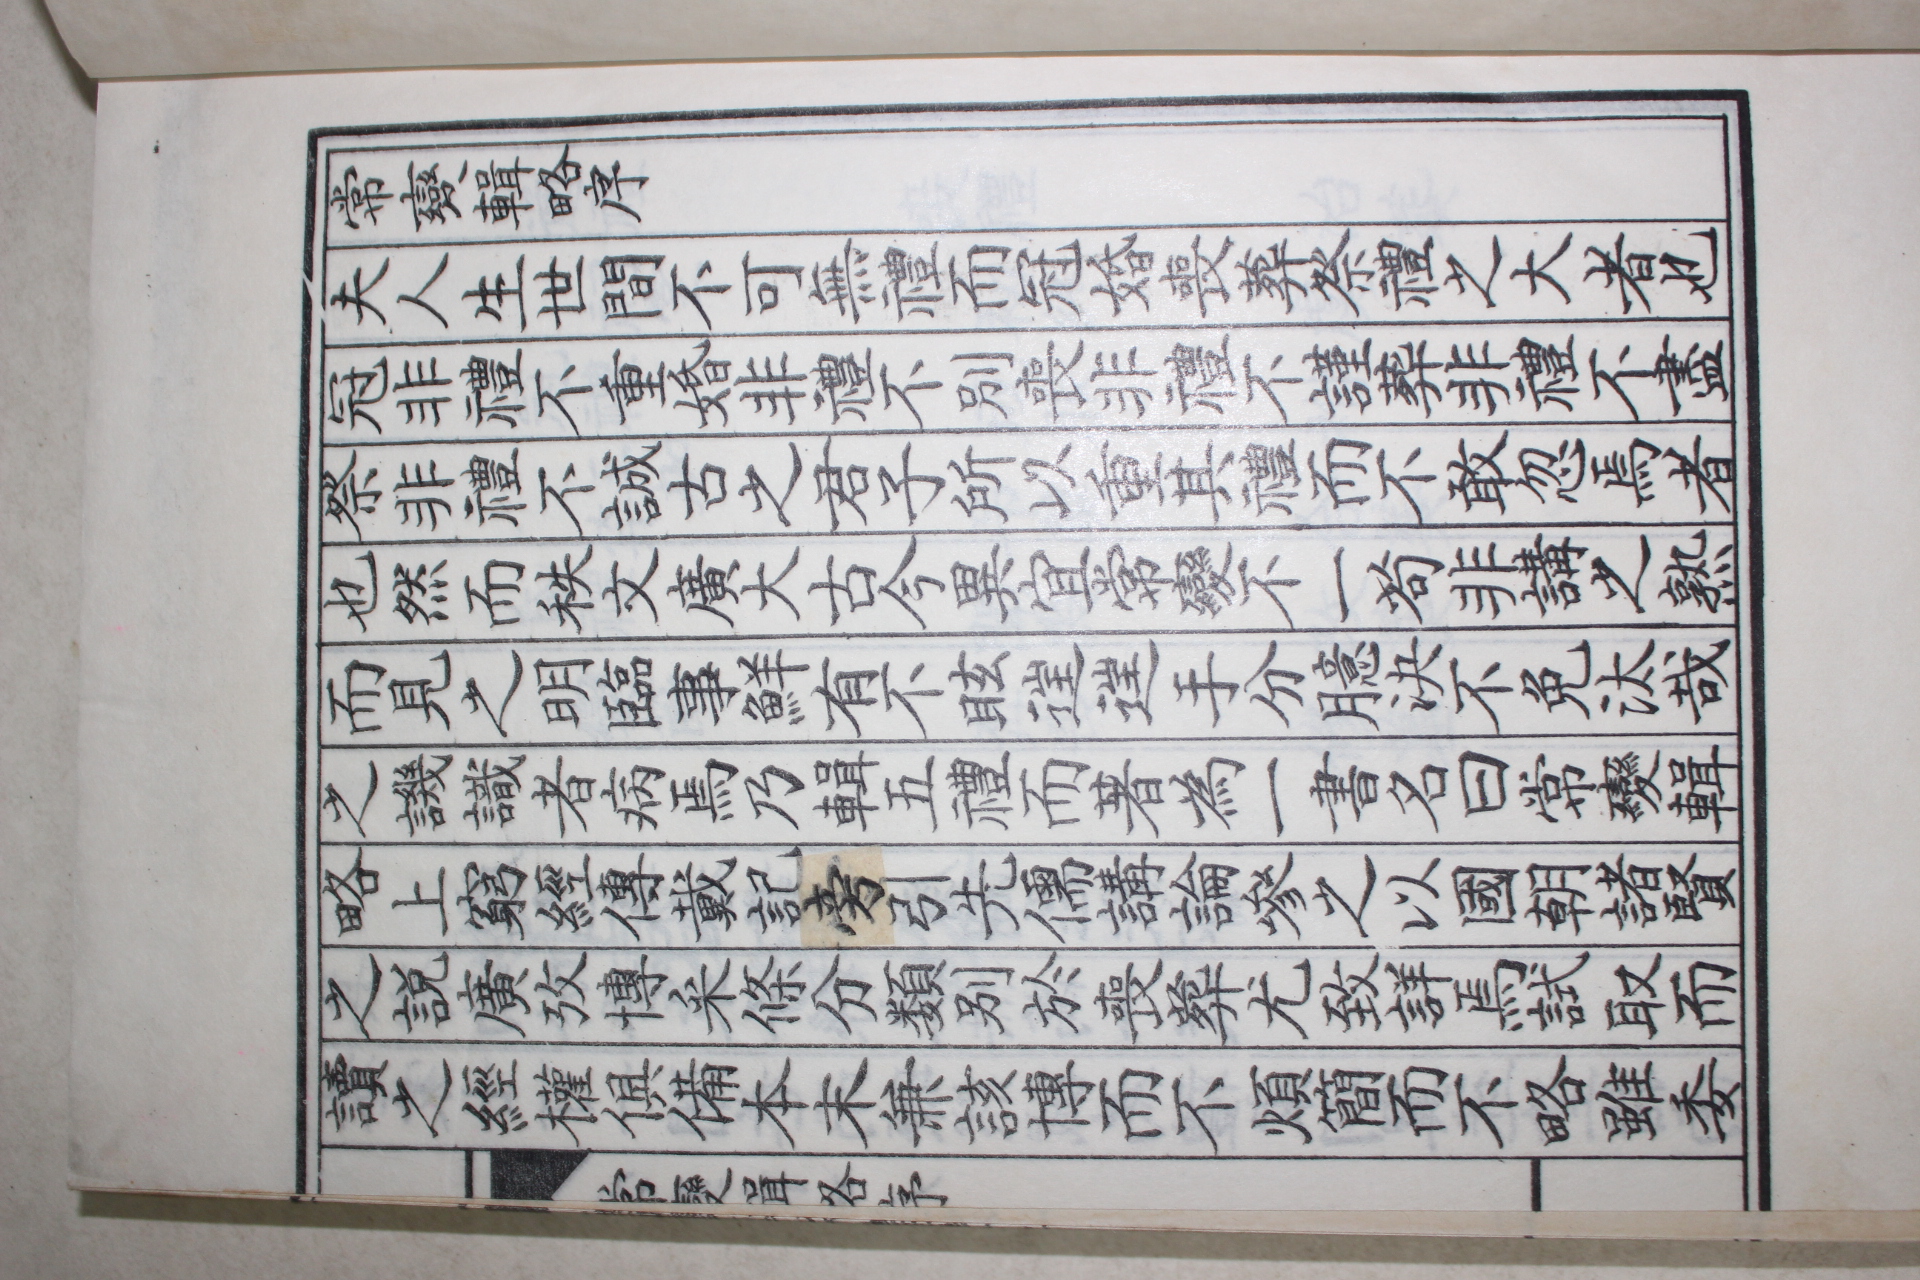 常變輯略序
夫人生世間不可無禮而冠婚喪葬祭禮之大者也
冠非禮不重婚非禮不別喪非禮不謹葬非禮不盡
祭非禮不誠古之君子所以重其禮而不敢忽焉者
也然而秩文廣大古今異宜常變不一若非講之熟
而見之明臨事鮮有不眩往往手分臆決不免汰哉
之譏識者病焉乃輯五禮而著為一書名曰常變輯
略上窮經傳戴記旁引先儒講論參之以國朝諸賢
之說廣攷博采條分類別於喪葬尤致詳焉試取而
讀之經權俱備本末兼該博而不煩簡而不略雖委
常變輯略序